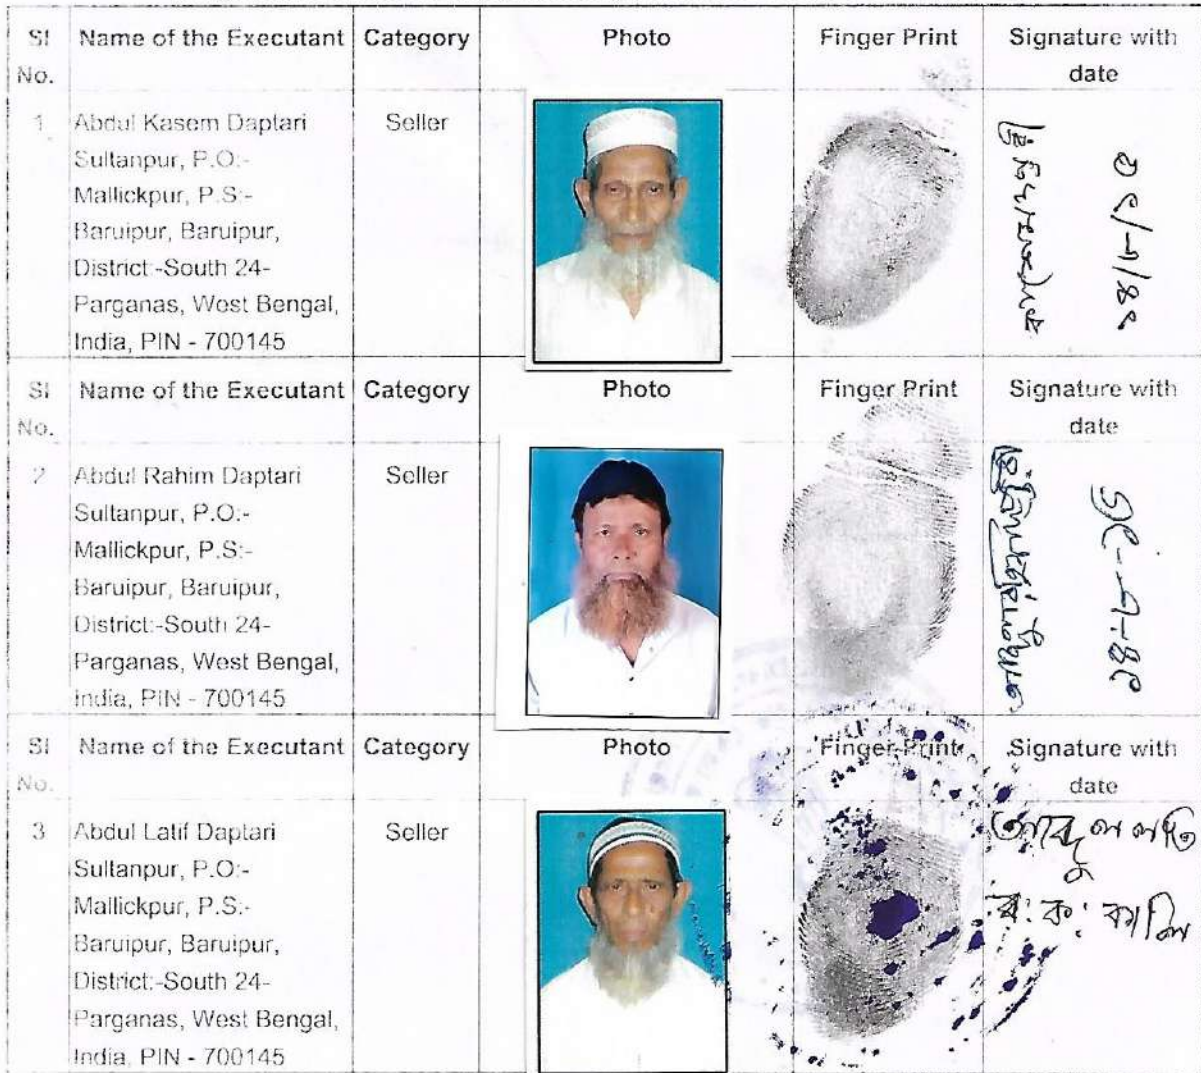 Sl No. Name of the Executant Category Photo Finger Print Signature with date
1 Abdul Kasem Daptari Seller
Sultanpur, P.O:-
Mallickpur, P.S:-
Baruipur, Baruipur,
District:-South 24-
Parganas, West Bengal,
India, PIN - 700145
Sl No. Name of the Executant Category Photo Finger Print Signature with date
2 Abdul Rahim Daptari Seller
Sultanpur, P.O:-
Mallickpur, P.S:-
Baruipur, Baruipur,
District:-South 24-
Parganas, West Bengal,
India, PIN - 700145
Sl No. Name of the Executant Category Photo Finger Print Signature with date
3 Abdul Latif Daptari Seller
Sultanpur, P.O:-
Mallickpur, P.S:-
Baruipur, Baruipur,
District:-South 24-
Parganas, West Bengal,
India, PIN - 700145